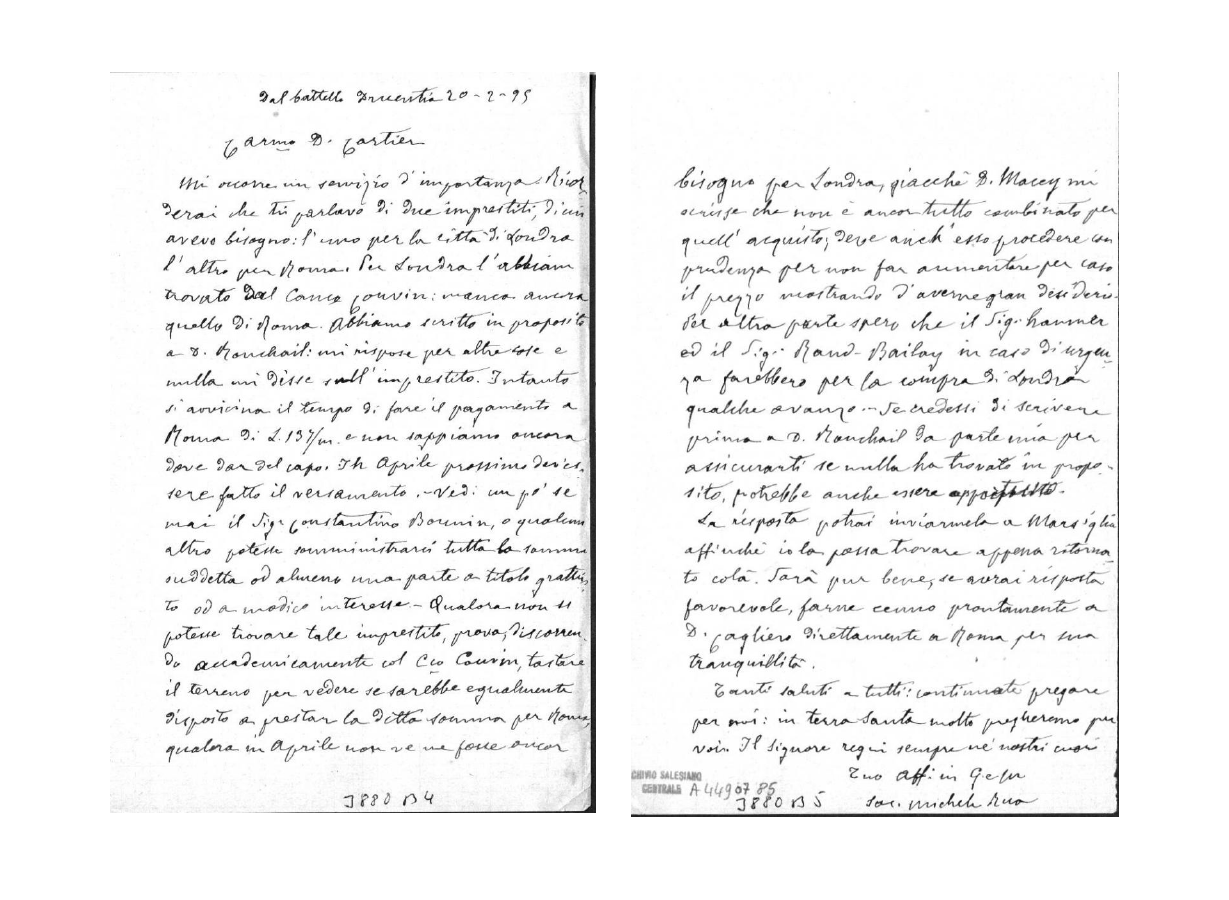 Dal battello Druentia 20-2-95
Carmo D. Cartier
Mi occorre un servizio d'importanza. Ricor-
derai che ti parlavo di due imprestiti, di cui
avevo bisogno: l'uno per la città di Londra
l'altro per Roma. Per Londra l'abbiam
trovato dal Canco Couvin: manca ancora
quello di Roma. Abbiamo scritto in proposito
a D. Ronchail: mi rispose per altre cose e
nulla mi disse sull'imprestito. Intanto
si avvicina il tempo di fare il pagamento a
Roma di L. 137/m. e non sappiamo ancora
dove dar del capo. In Aprile prossimo dev'es-
sere fatto il versamento. - Vedi un po' se
mai il Sigr Constantino Bouvin, o qualcun
altro potesse somministrarci tutta la somma
suddetta od almeno una parte a titolo gratui-
to od a modico interesse - Qualora non si
potesse trovare tale imprestito, prova, discorren-
do accademicamente col Cco Couvin, tastare
il terreno per vedere se sarebbe egualmente
disposto a prestar la ditta somma per Roma,
qualora in Aprile non ve ne fosse ancor
J880 B4
bisogno per Londra, giacchè D. Macey mi
scrisse che non è ancor tutto combinato per
quell'acquisto; deve anch'esso procedere con
prudenza per non far aumentare per caso
il prezzo mostrando d'averne gran desiderio.
Per altra parte spero che il Sigr hanmer
ed il Sigr Rand-Bailay in caso di urgen-
za farebbero per la compra di Londra
qualche avanzo. - Se credessi di scrivere
prima a D. Ronchail da parte mia per
assicurarti se nulla ha trovato in propo-
sito, potrebbe anche essere
La risposta potrai inviarmela a Marsiglia
affinchè io la possa trovare appena ritorna-
to colà. Sarà pur bene, se avrai risposta
favorevole, farne cenno prontamente a
D. Cagliero direttamente a Roma per sua
tranquillità.
Tanti saluti a tutti: continuate pregare
per noi: in terra Santa molto pregheremo per
voi. Il Signore regni sempre ne' nostri cuori
Tuo Aff. in G. e M.
Sac. Michele Rua
CHIVIO SALESIANO
CENTRALE A 4490785
J880 B5